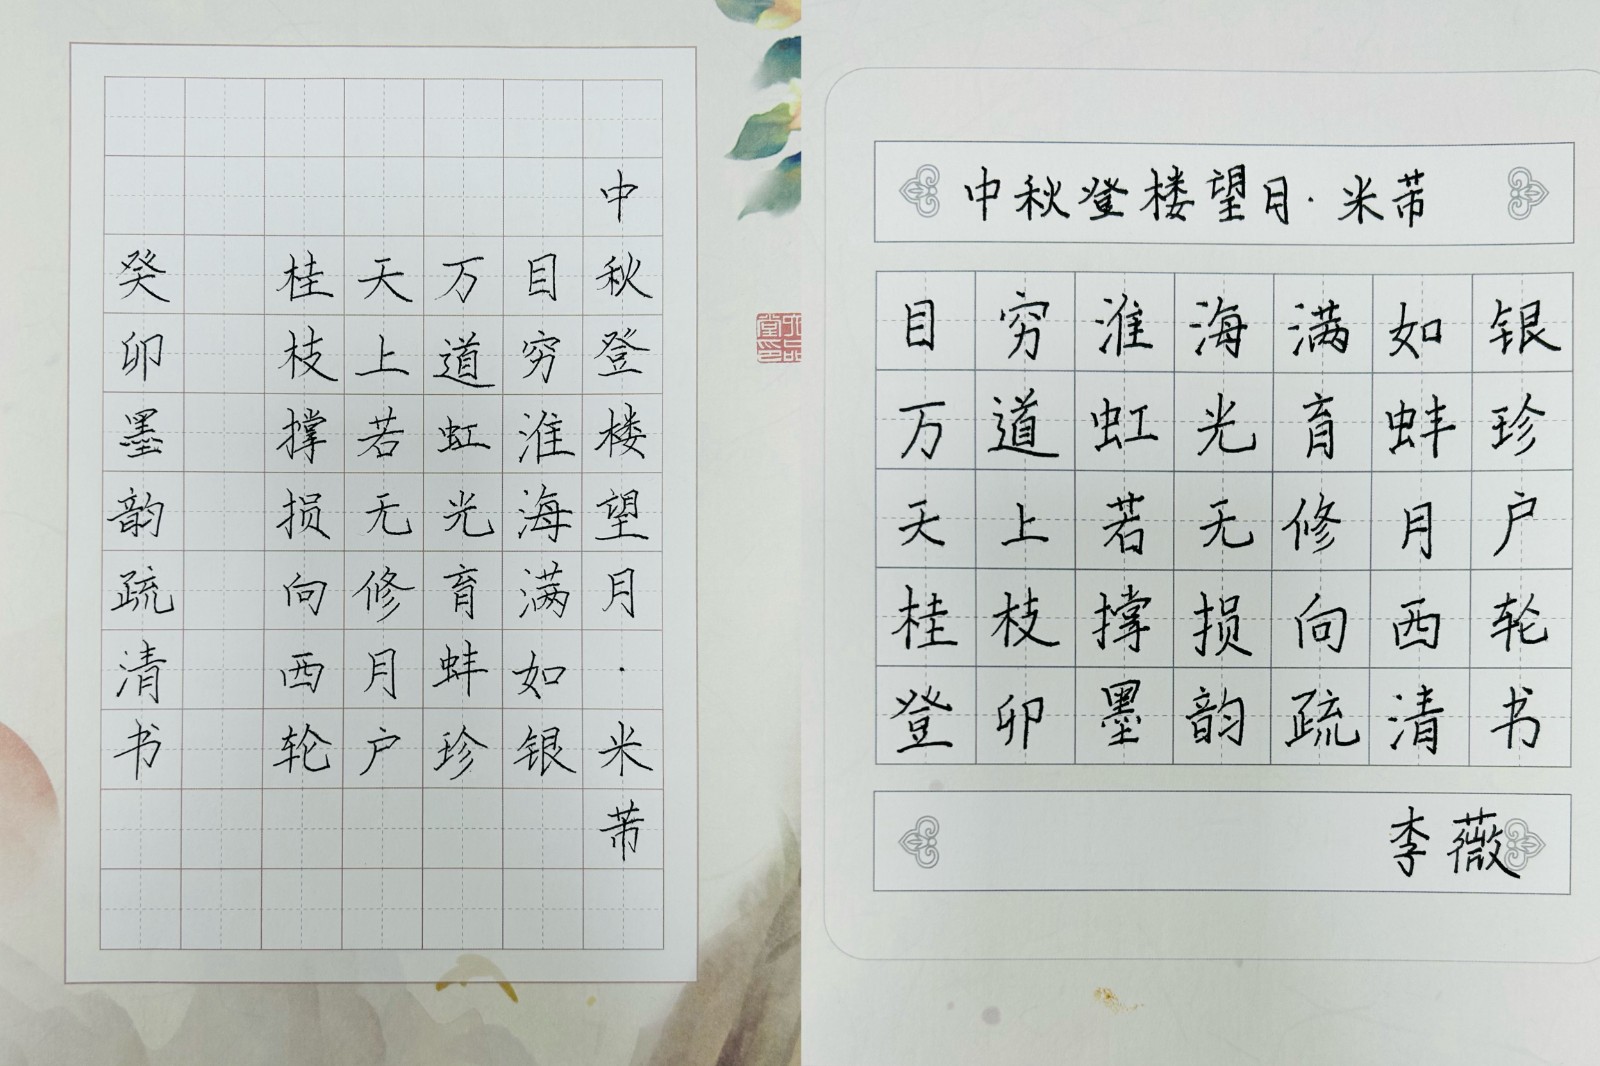 中秋登楼望月·米芾
目穷淮海满如银
万道虹光育蚌珍
天上若无修月户
桂枝撑损向西轮
癸卯墨韵疏清书
六品堂印
中秋登楼望月·米芾
目穷淮海满如银
万道虹光育蚌珍
天上若无修月户
桂枝撑损向西轮
登卯墨韵疏清书
李薇